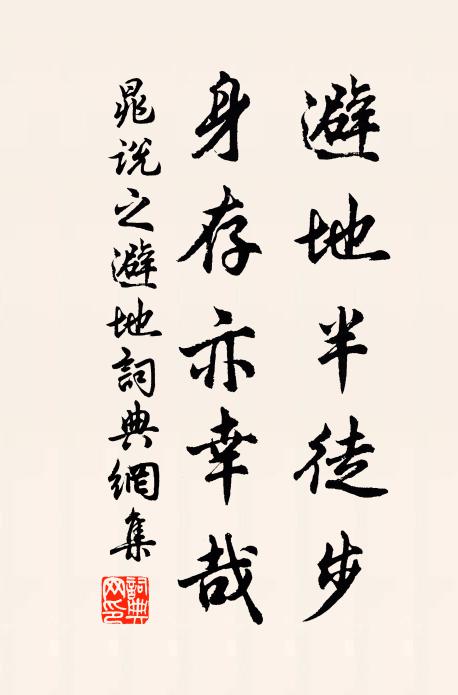 避地半徒步
身存亦幸哉
晁说之避地詞典網集
詞典网印